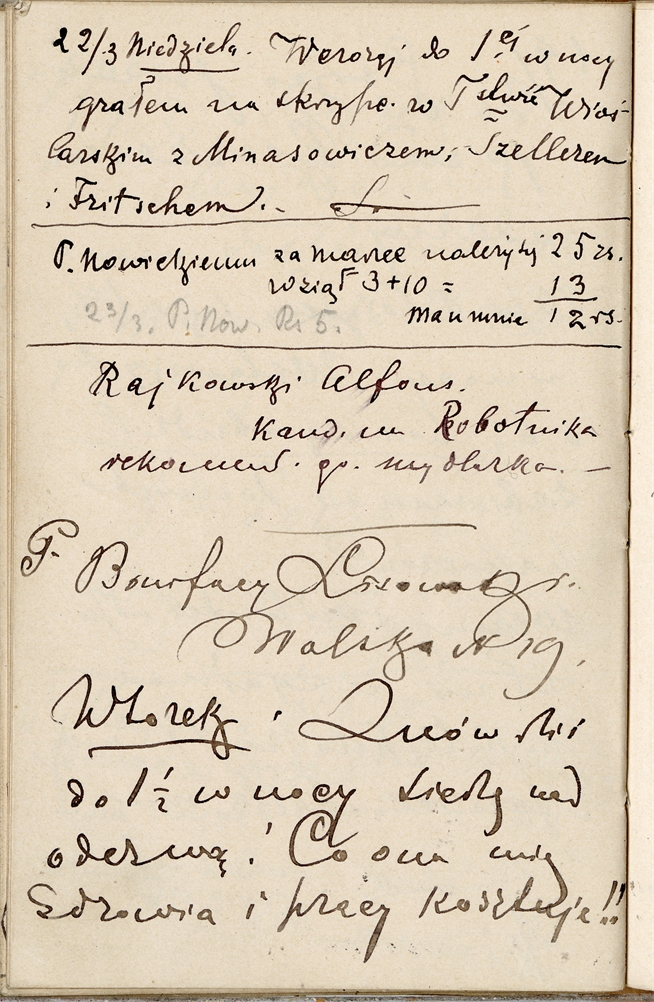 22/3 Niedziela. Wczoraj do 1ej w nocy
grałem na skrzypc. w Tstwie Wioś-
larskim z Minasowiczem, Szellerem
i Fritschem. -
P. Nowickiemu za marzec należy się 25 rs.
wziął 3+10 = 13
23/3. P. Now. Rs 5. ma u mnie 12 rs.
Rajkowski Alfons.
Kand. na Robotnika
rekomend. go. mydlarka. -
P. Bonifacy Lisowski.
Wolska N 19.
Wtorek! Znów dziś
do 1½ w nocy siedzę nad
odezwą! Co ona mię
Zdrowia i pracy kosztuje!!